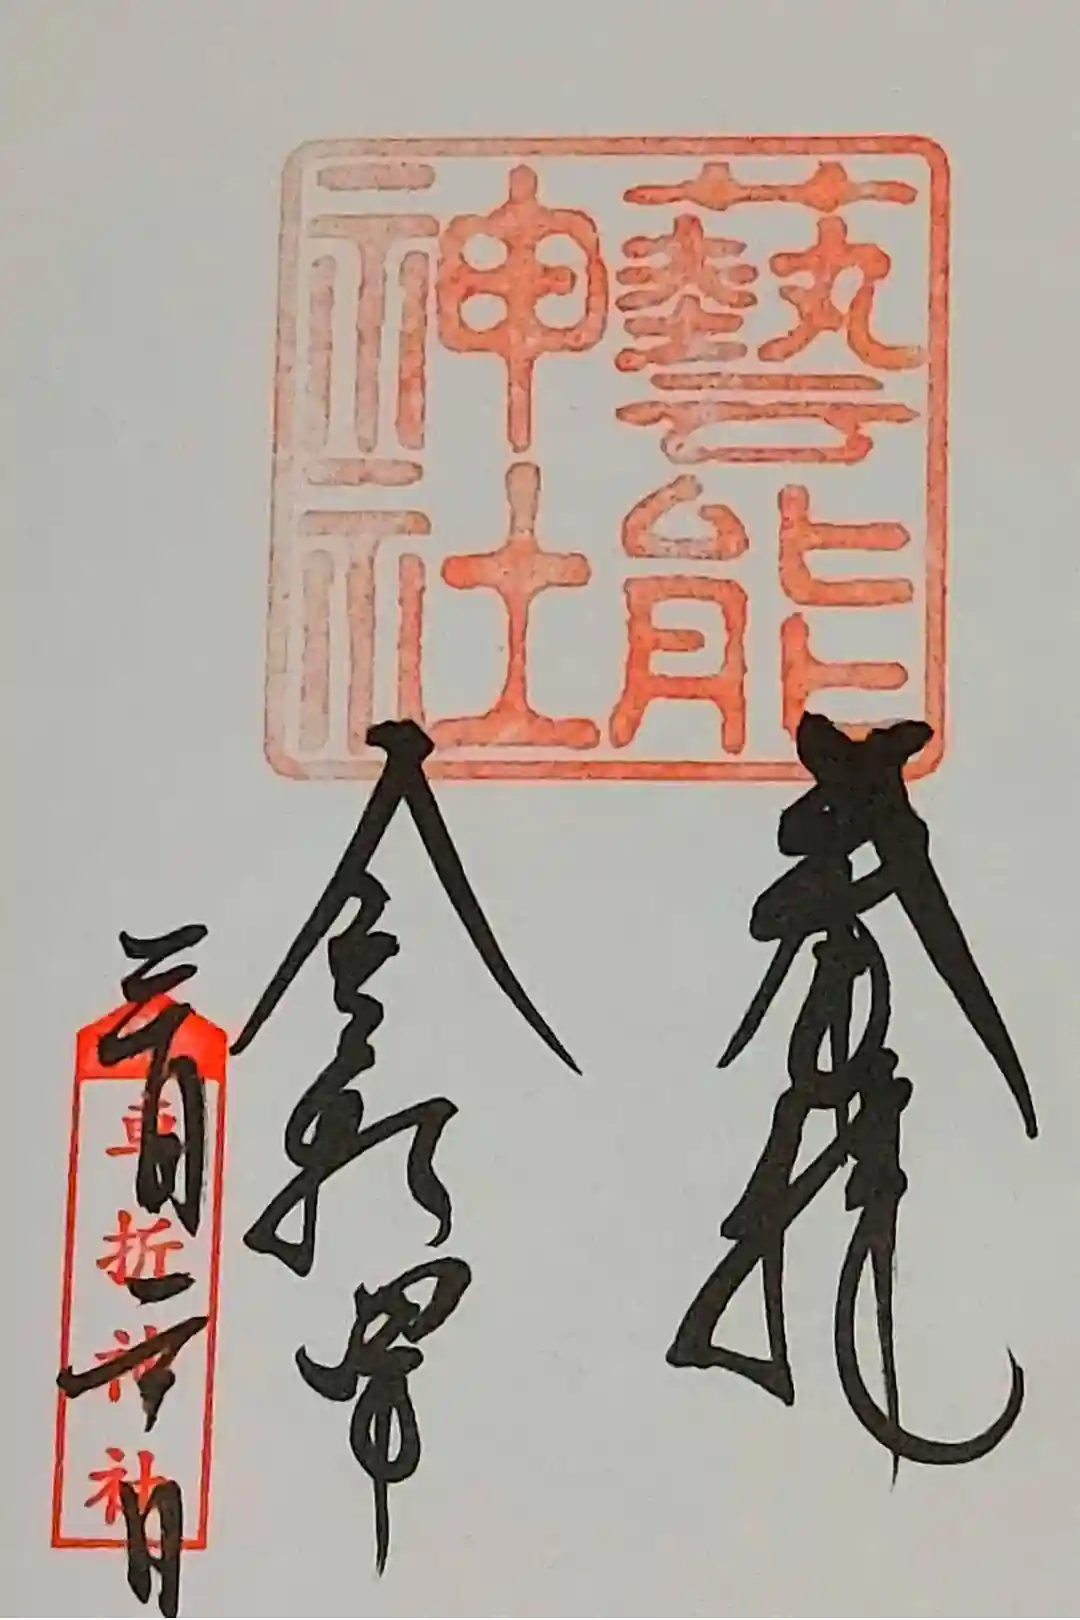 藝能
神社
奉拝
令和四年
車折神社